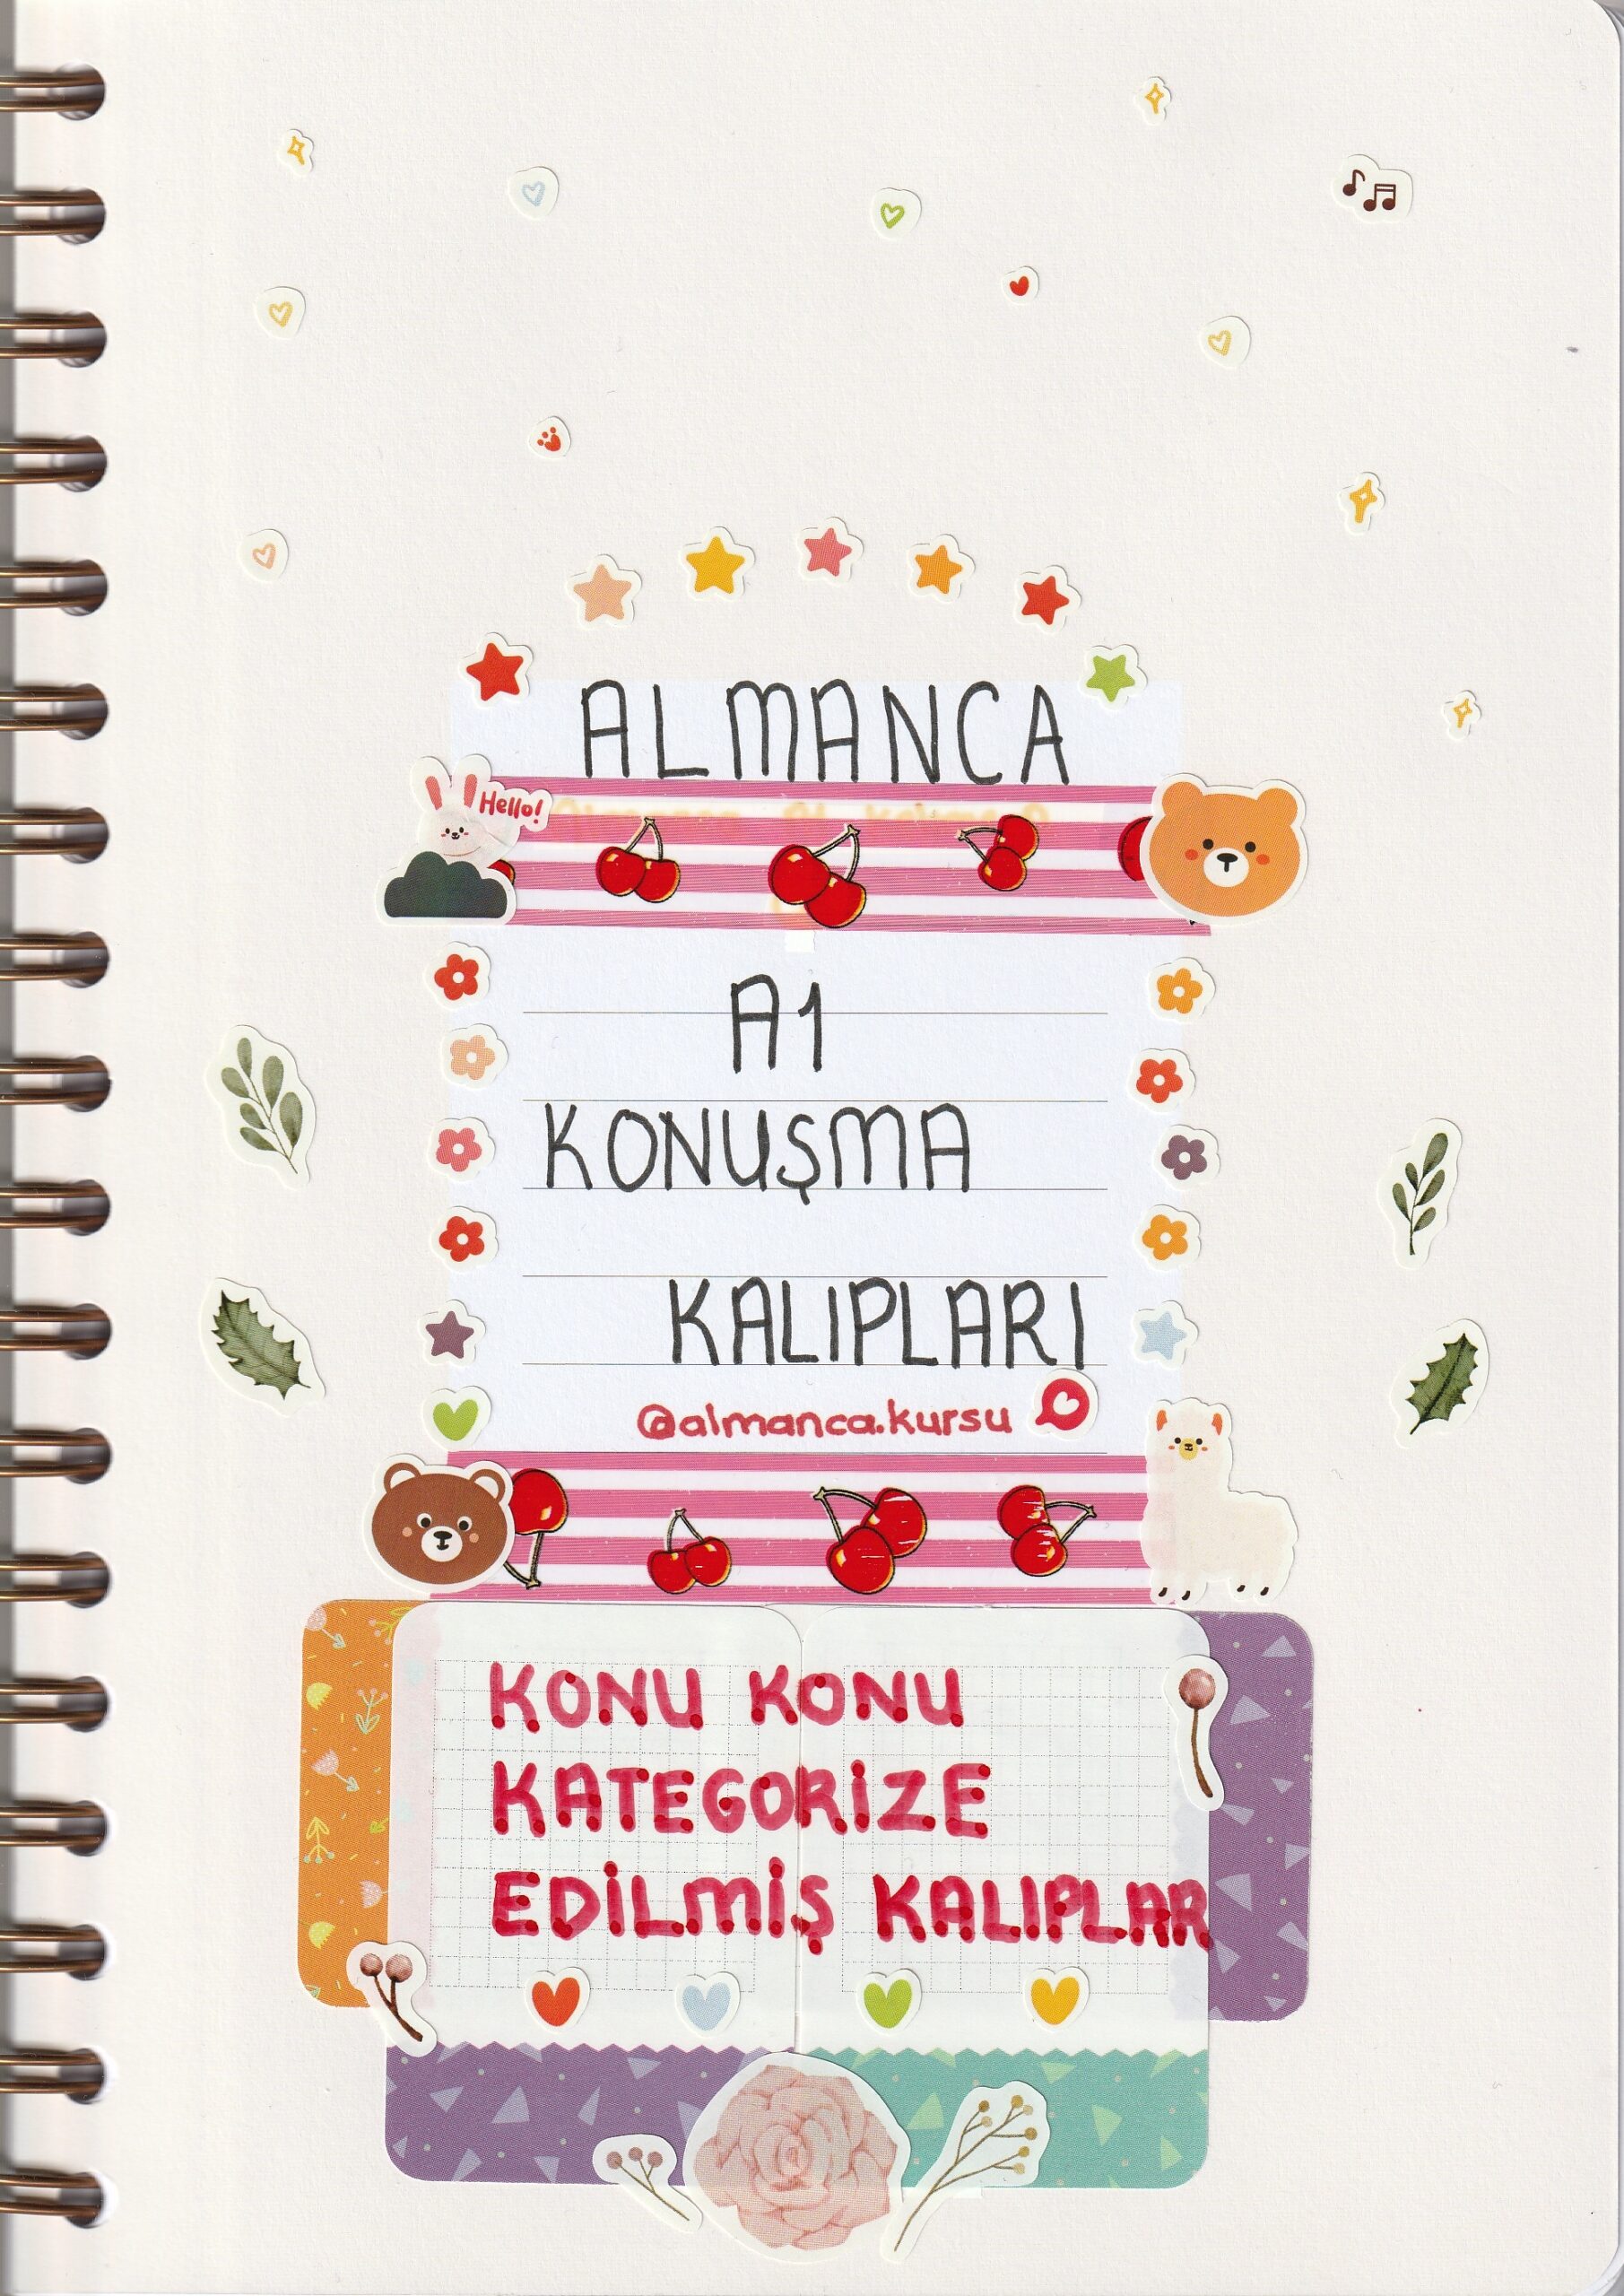 ALMANCA
Hello!
A1
KONUŞMA
KALIPLARI
@almanca.kursu
KONU KONU
KATEGORİZE
EDİLMİŞ KALIPLAR